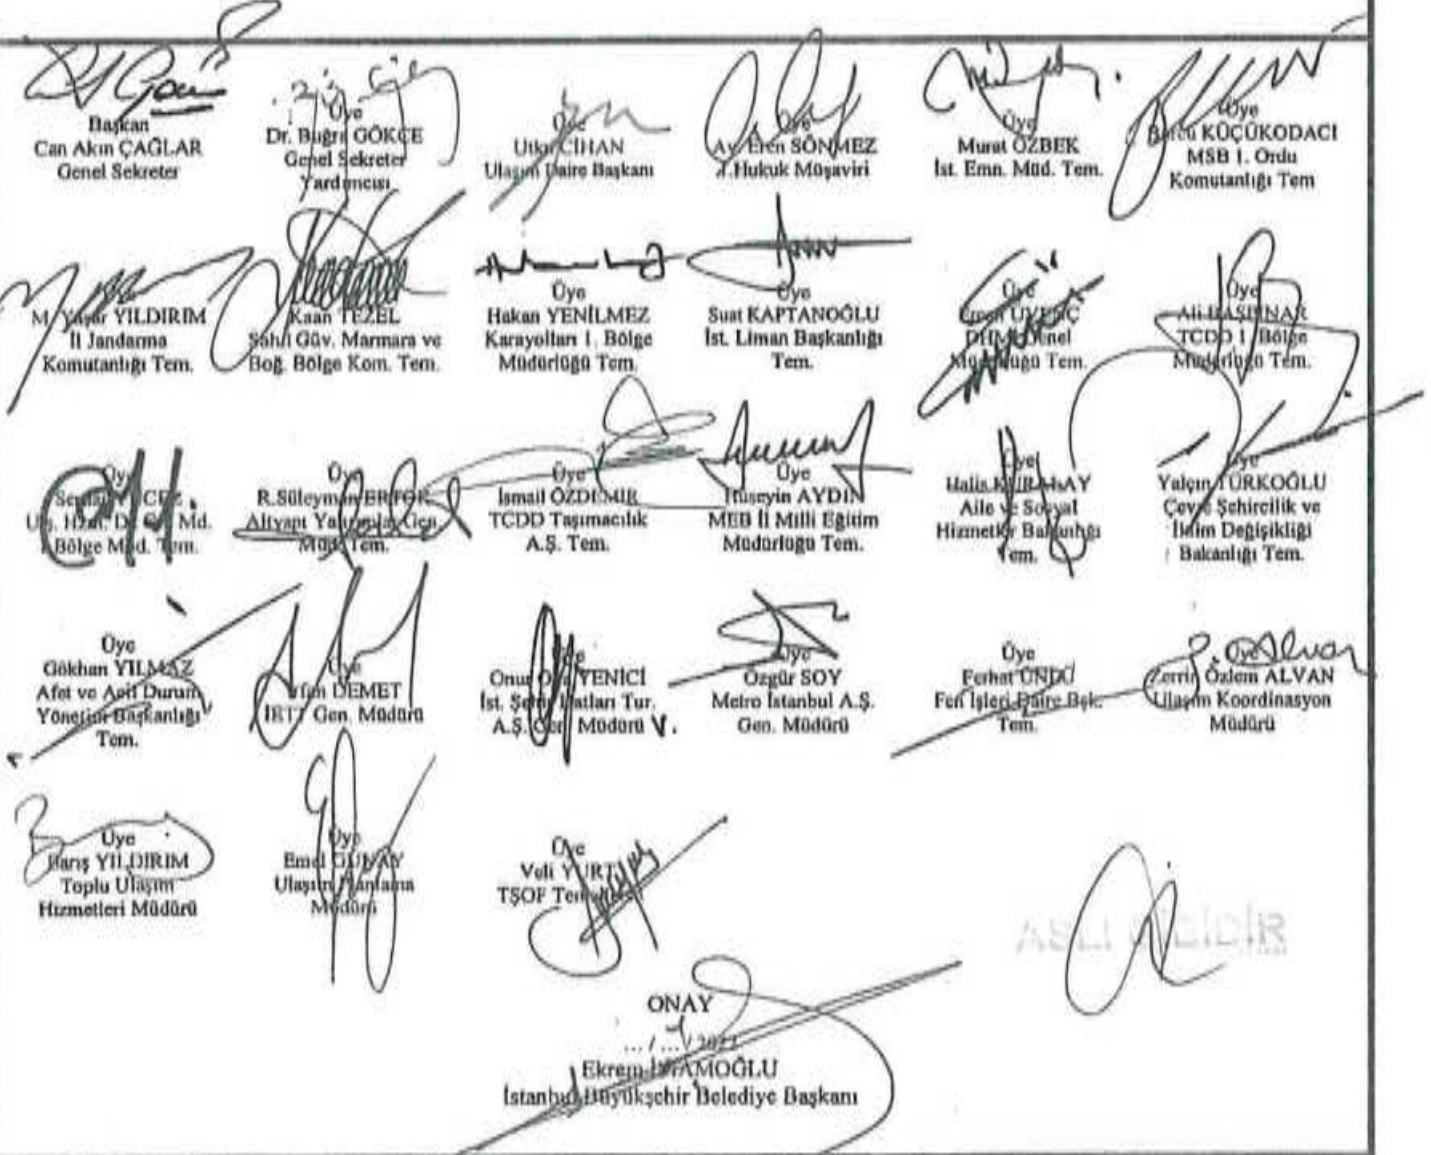 Başkan
Can Akın ÇAĞLAR
Genel Sekreter
Üye
Dr. Buğra GÖKÇE
Genel Sekreter
Yardımcısı
Üye
Utku CİHAN
Ulaşım Daire Başkanı
Üye
Av. Eren SÖNMEZ
1.Hukuk Müşaviri
Üye
Murat ÖZBEK
İst. Emn. Müd. Tem.
Üye
KÜÇÜKODACI
MSB 1. Ordu
Komutanlığı Tem
M. Yaşar YILDIRIM
İl Jandarma
Komutanlığı Tem.
Kaan TEZEL
Sahil Güv. Marmara ve
Boğ. Bölge Kom. Tem.
Üye
Hakan YENİLMEZ
Karayolları 1. Bölge
Müdürlüğü Tem.
Üye
Suat KAPTANOĞLU
İst. Liman Başkanlığı
Tem.
Üye
DHMİ Genel
Müdürlüğü Tem.
Üye
Ali BAŞPINAR
TCDD 1. Bölge
Müdürlüğü Tem.
Üye
Md.
Bölge Müd. Tem.
Üye
R.Süleyman ERTÖR
Altyapı Yatırımlar Gen.
Müd. Tem.
Üye
İsmail ÖZDEMİR
TCDD Taşımacılık
A.Ş. Tem.
Üye
Hüseyin AYDIN
MEB İl Milli Eğitim
Müdürlüğü Tem.
Üye
Halis
Aile ve Sosyal
Hizmetler Bakanlığı
Tem.
Üye
Yalçın TÜRKOĞLU
Çevre Şehircilik ve
İklim Değişikliği
Bakanlığı Tem.
Üye
Gökhan YILMAZ
Afet ve Acil Durum
Yönetim Başkanlığı
Tem.
Üye
İrfan DEMET
İETT Gen. Müdürü
Üye
Onur YENİCİ
İst. Şehir Hatları Tur.
A.Ş. Gen. Müdürü V.
Üye
Özgür SOY
Metro İstanbul A.Ş.
Gen. Müdürü
Üye
Ferhat ÜNDÜ
Fen İşleri Daire Bşk.
Tem.
Üye
Zerrin Özlem ALVAN
Ulaşım Koordinasyon
Müdürü
Üye
Barış YILDIRIM
Toplu Ulaşım
Hizmetleri Müdürü
Üye
Emel GÜNAY
Ulaşım Planlama
Müdürü
Üye
Veli YURT
TŞOF Temsilcisi
ASLI GİBİDİR
ONAY
Ekrem İMAMOĞLU
İstanbul Büyükşehir Belediye Başkanı